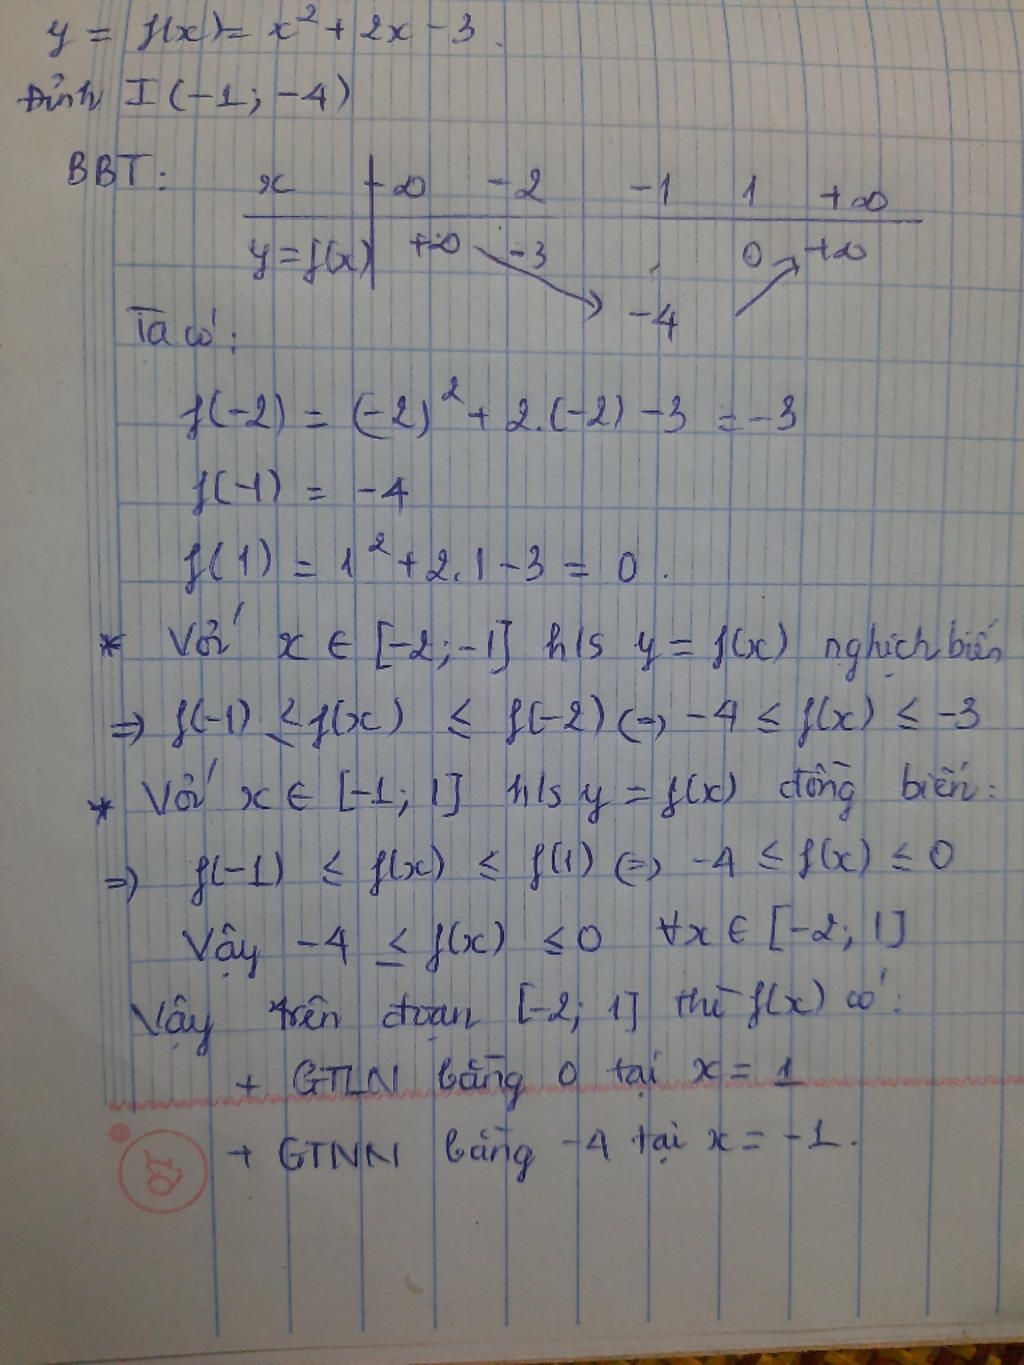 y = f(x) = x² + 2x - 3.
Đỉnh I (-1; -4)
BBT: x -∞ -2 -1 1 +∞
y = f(x) +∞ -3 -4 0 +∞
Ta có:
f(-2) = (-2)² + 2.(-2) - 3 = -3
f(-1) = -4
f(1) = 1² + 2.1 - 3 = 0.
* Với x ∈ [-2; -1] h/s y = f(x) nghịch biến
=> f(-1) ≤ f(x) ≤ f(-2) (=) -4 ≤ f(x) ≤ -3
* Với x ∈ [-1; 1] h/s y = f(x) đồng biến:
=> f(-1) ≤ f(x) ≤ f(1) (=) -4 ≤ f(x) ≤ 0
Vậy -4 ≤ f(x) ≤ 0 ∀x ∈ [-2; 1]
Vậy trên đoạn [-2; 1] thì f(x) có:
+ GTLN bằng 0 tại x = 1
+ GTNN bằng -4 tại x = -1.